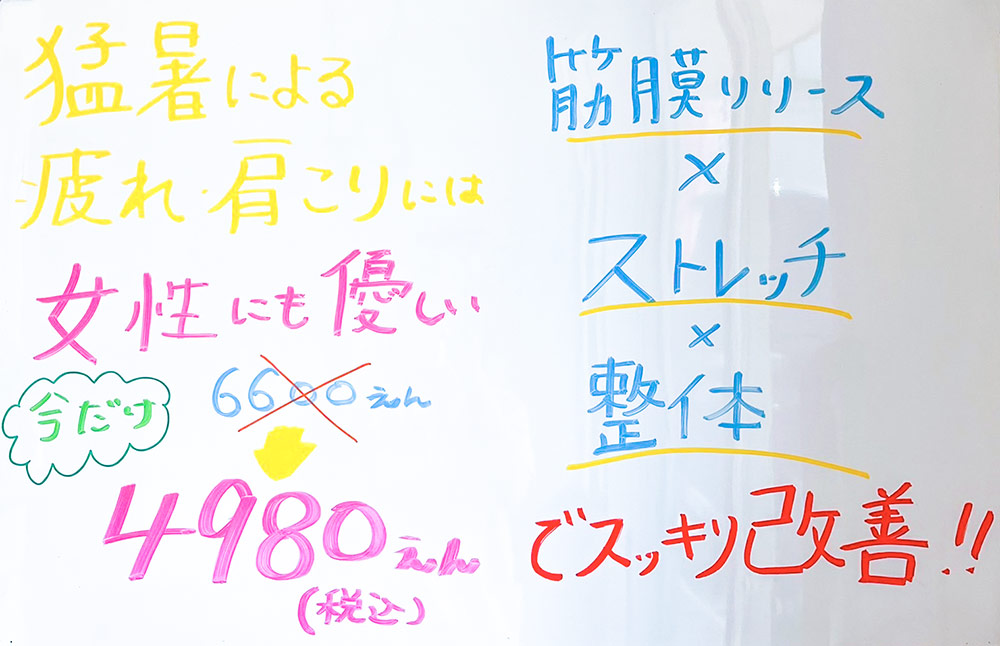 猛暑による
疲れ・肩こりには
女性にも優しい
今だけ
6600えん
4980えん
(税込)
筋膜リリース
×
ストレッチ
×
整体
でスッキリ改善!!